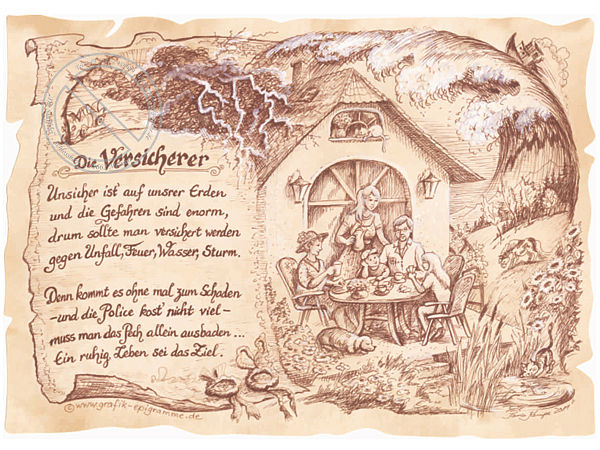 Die Versicherer
Unsicher ist auf unsrer Erden
und die Gefahren sind enorm,
drum sollte man versichert werden
gegen Unfall, Feuer, Wasser, Sturm.
Denn kommt es ohne mal zum Schaden
– und die Police kost' nicht viel –
muss man das Pech allein ausbaden...
Ein ruhig Leben sei das Ziel.
©www.grafik-epigramme.de